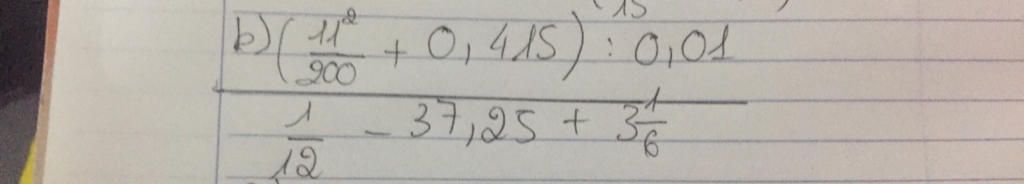 (15
b) (11²/200 + 0,415) : 0,01
1/12 - 37,25 + 3 1/6